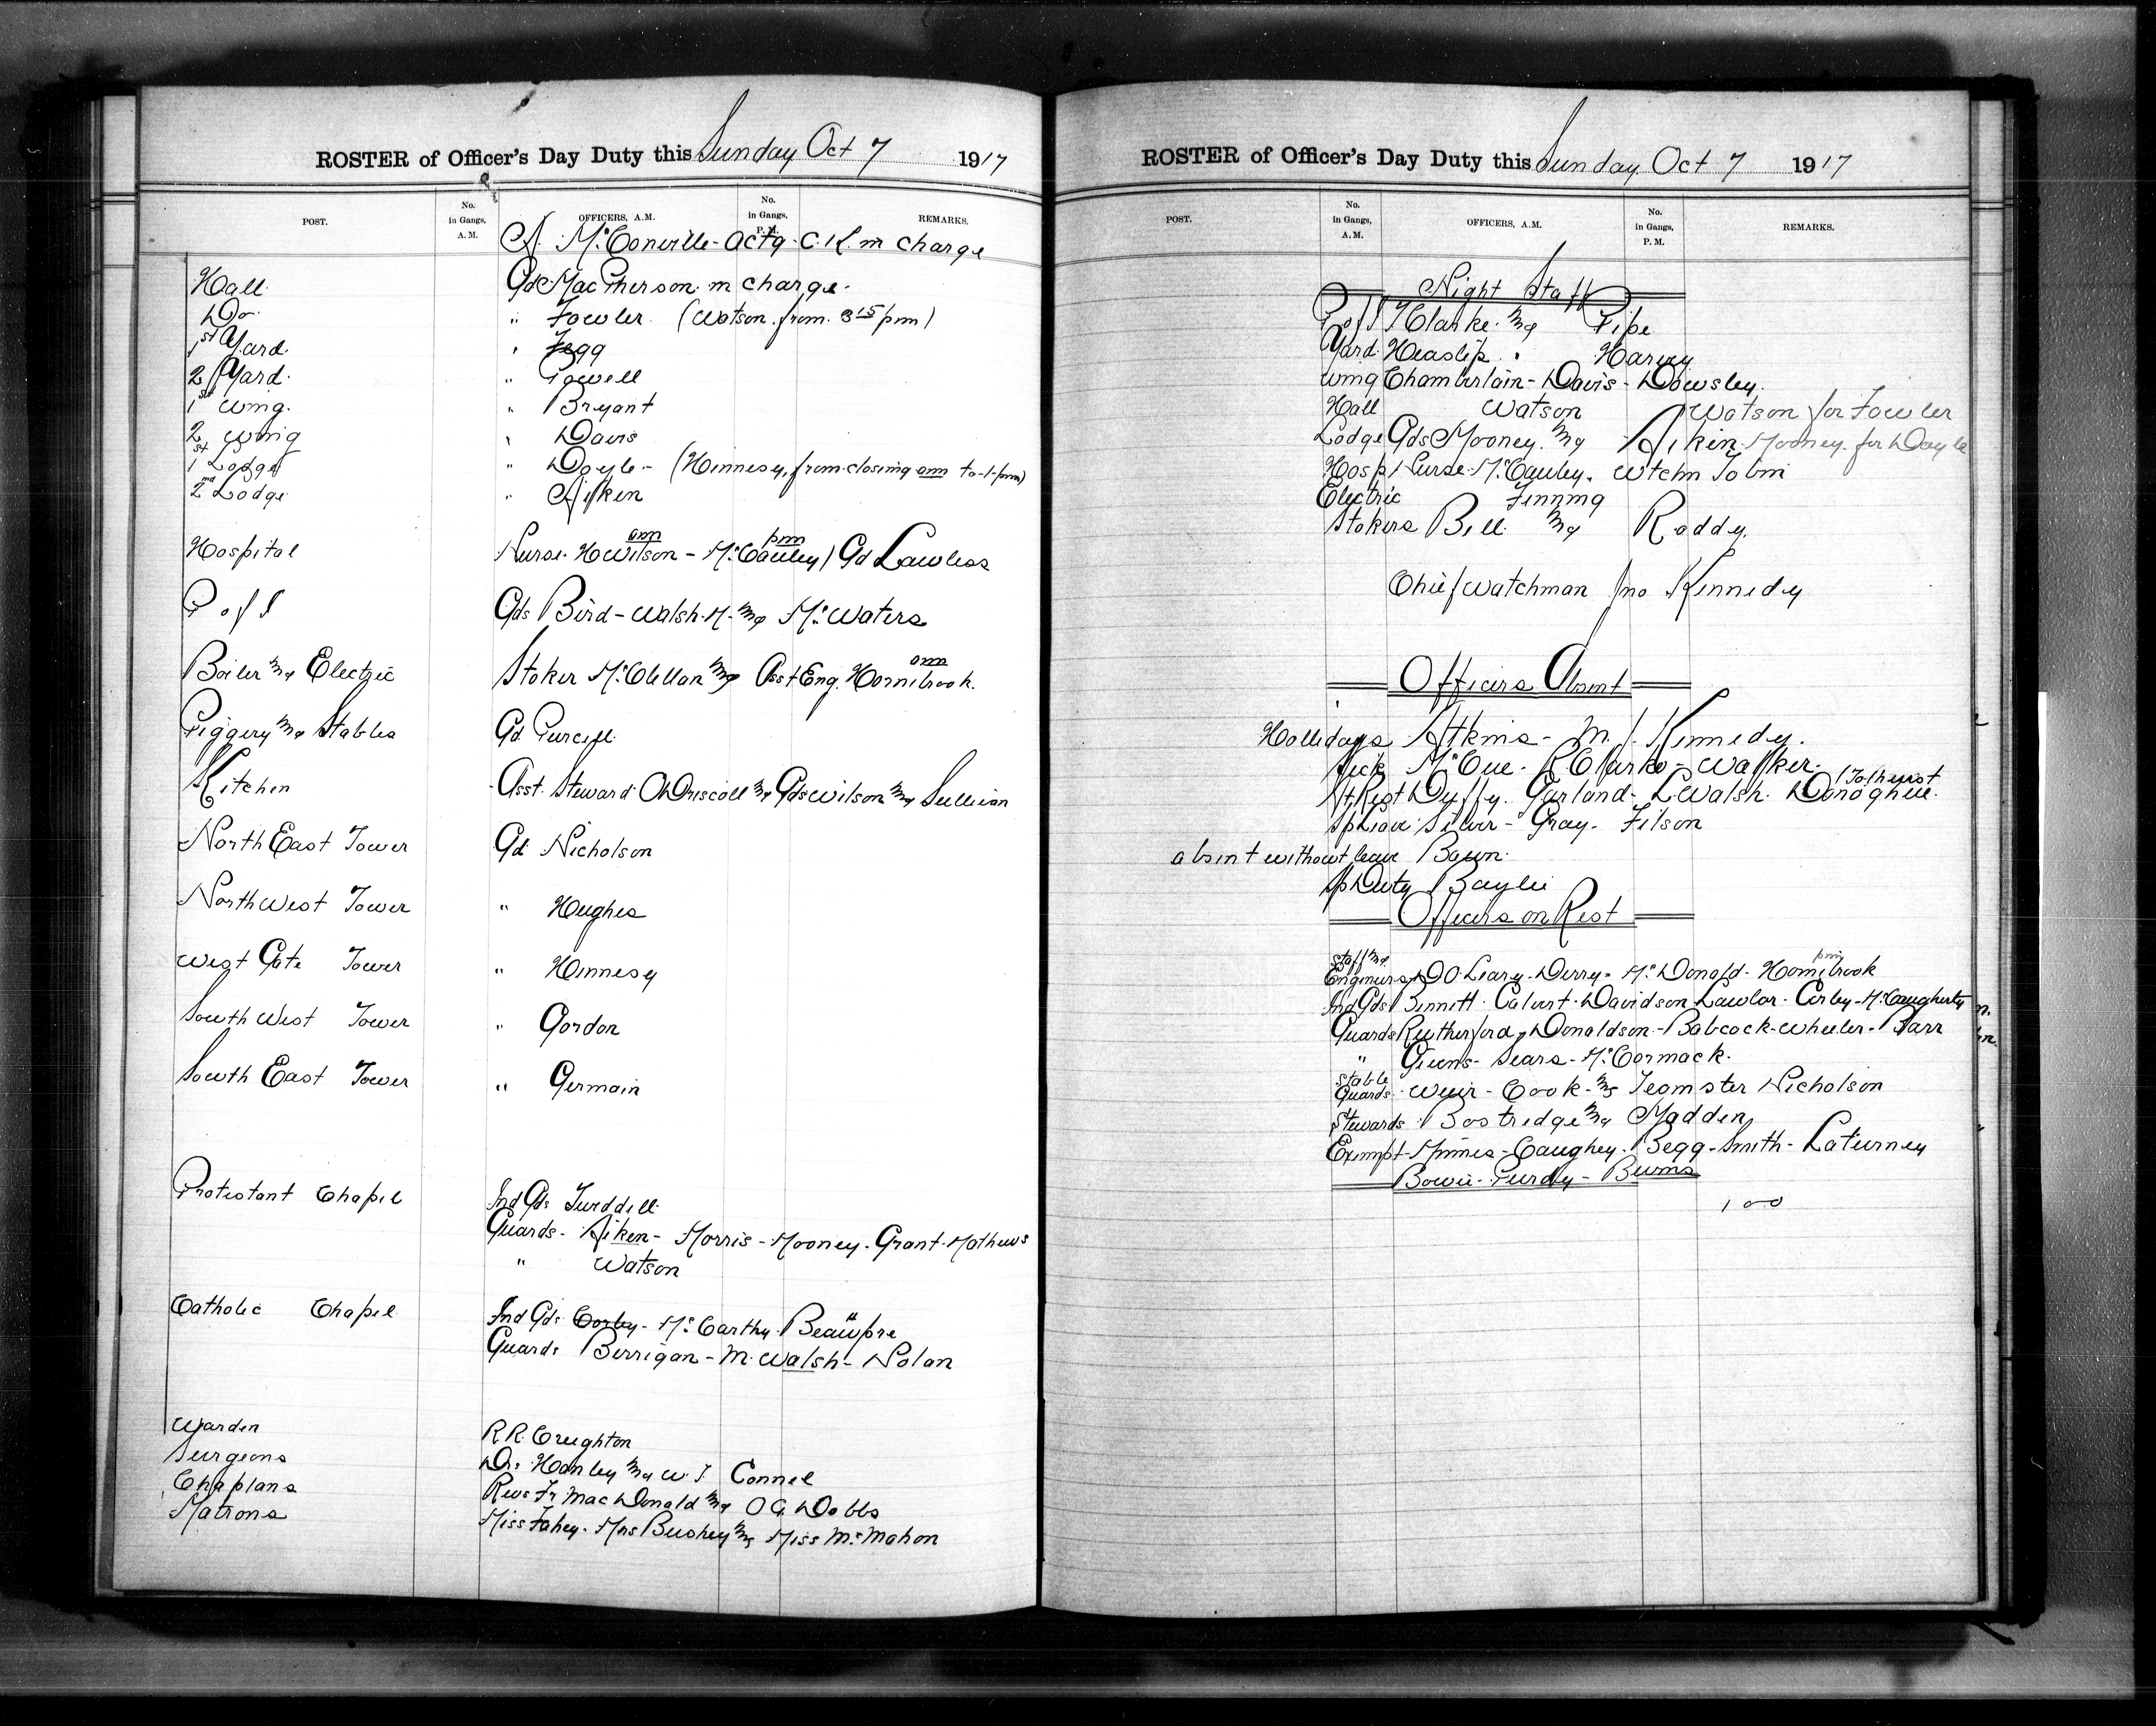 ROSTER of Officer's Day Duty this Sunday Oct 7 1917
POST. No. in Gangs, A.M. OFFICERS, A.M. No. in Gangs, P.M. REMARKS.
A. McConville - Actg. C.K. in charge
Hall Gd MacPherson in charge.
Do " Fowler (Watson from 3 15 pm)
1st Yard " Fegg
2 Yard " Powell
1st Wing " Bryant
2 Wing " Davis
1st Lodge " Doyle - (Hennesy from closing am to 1 pm)
2nd Lodge " Aiken
Hospital Nurse H Wilson am - McCauley pm / Gd Lawless
P of I Gds Bird - Walsh. M. & McWaters
Boiler & Electric Stoker McClellan & Asst Eng. Hornibrook. am
Piggery & Stables Gd Purcell
Kitchen Asst. Steward O Driscoll & Gds Wilson & Sullivan
North East Tower Gd Nicholson
North West Tower " Hughes
West Gate Tower " Hennesy
South West Tower " Gordon
South East Tower " Germain
Protestant Chapel Ind Gds Tweddell
Guards - Aiken - Morris - Mooney - Grant - Mathews
" Watson
Catholic Chapel Ind Gds Corby - McCarthy - Beaupre
Guards Berrigan - M. Walsh - Nolan
Warden R.R. Creighton
Surgeons Drs Hanley & W. T Connel
Chaplans Revs Fr MacDonald & O G. Dobbs
Matrons Miss Fahey - Mrs Bushey & Miss McMahon
ROSTER of Officer's Day Duty this Sunday Oct 7 1917
POST. No. in Gangs, A.M. OFFICERS, A.M. No. in Gangs, P.M. REMARKS.
Night Staff
P of I T Clarke & Pipe
Yard Heaslip " Harvey
Wing Chamberlain - Davis - Dowsley.
Hall Watson Watson for Fowler
Lodge Gds Mooney & Aiken Mooney for Doyle
Hosp Nurse McCauley. Wtchn Tobin
Electric Finning
Stokers Bell & Roddy.
Chief Watchman Jno Kennedy
Officers Absent
Hollidays Atkins - M. J. Kennedy.
Sick McCue - R Clarke - Walker.
At Rest Duffy. Garland - L Walsh. Donoghue. Tolhurst
Sp Leave Silver - Gray - Filson
absent without leave Bawn.
Sp Duty Baylie
Officers on Rest
Staff & Engineers D O Leary - Derry - McDonald - Hornibrook pm
Ind Gds Bennett - Calvert - Davidson Lawlor - Corby - McCaugherty
Guards Rutherford, Donaldson - Babcock - Wheeler - Barr
" Givens - Sears - McCormack.
Stable Guards Weir - Cook & Teamster Nicholson
Stewards Bostridge & Madden
Exempt - Mimes - Caughey. Begg - Smith - Laturney
Bowie - Purdy - Burns
100